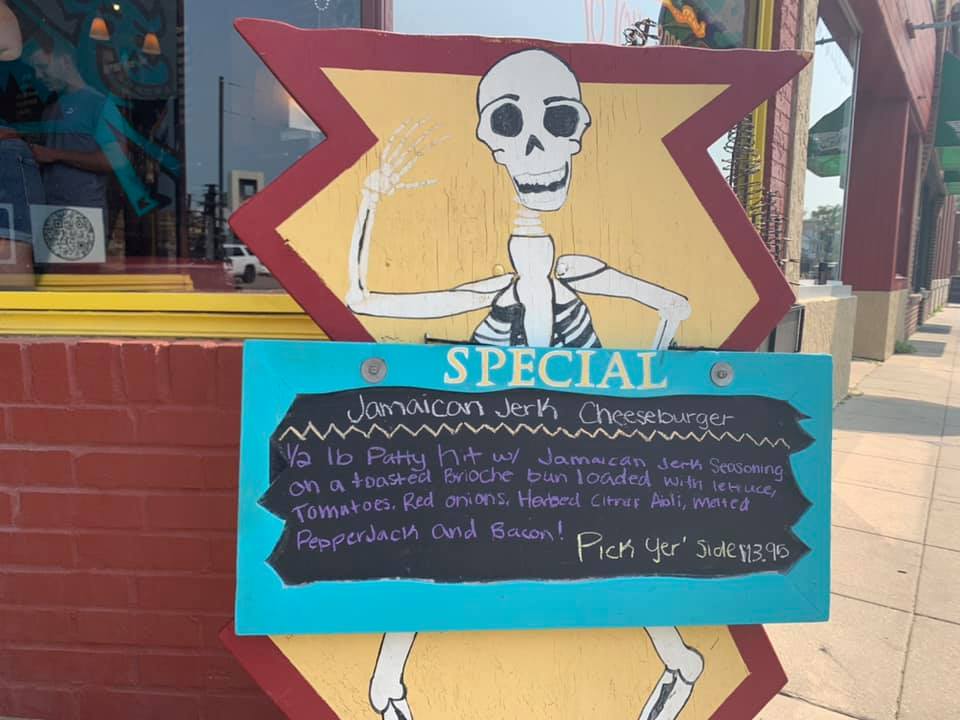 SPECIAL
Jamaican Jerk Cheeseburger
1/2 lb Patty hit w/ Jamaican Jerk Seasoning
on a toasted Brioche bun loaded with lettuce,
Tomatoes, Red onions, Herbed Citrus Aioli, melted
PepperJack and Bacon!
Pick Yer' Side $13.95